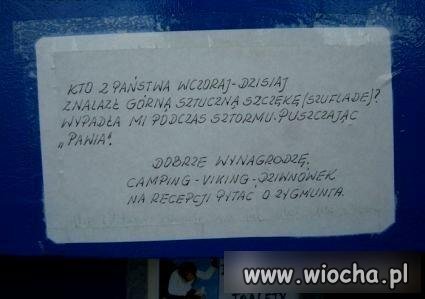 KTO Z PAŃSTWA WCZORAJ-DZISIAJ
ZNALAZŁ GÓRNĄ SZTUCZNĄ SZCZĘKĘ/SZUFLADĘ/?
WYPADŁA MI PODCZAS SZTORMU. PUSZCZAJĄC
„PAWIA".
DOBRZE WYNAGRODZĘ.
CAMPING-VIKING-DZIWNÓWEK
NA RECEPCJI PYTAĆ O ZYGMUNTA.
www.wiocha.pl